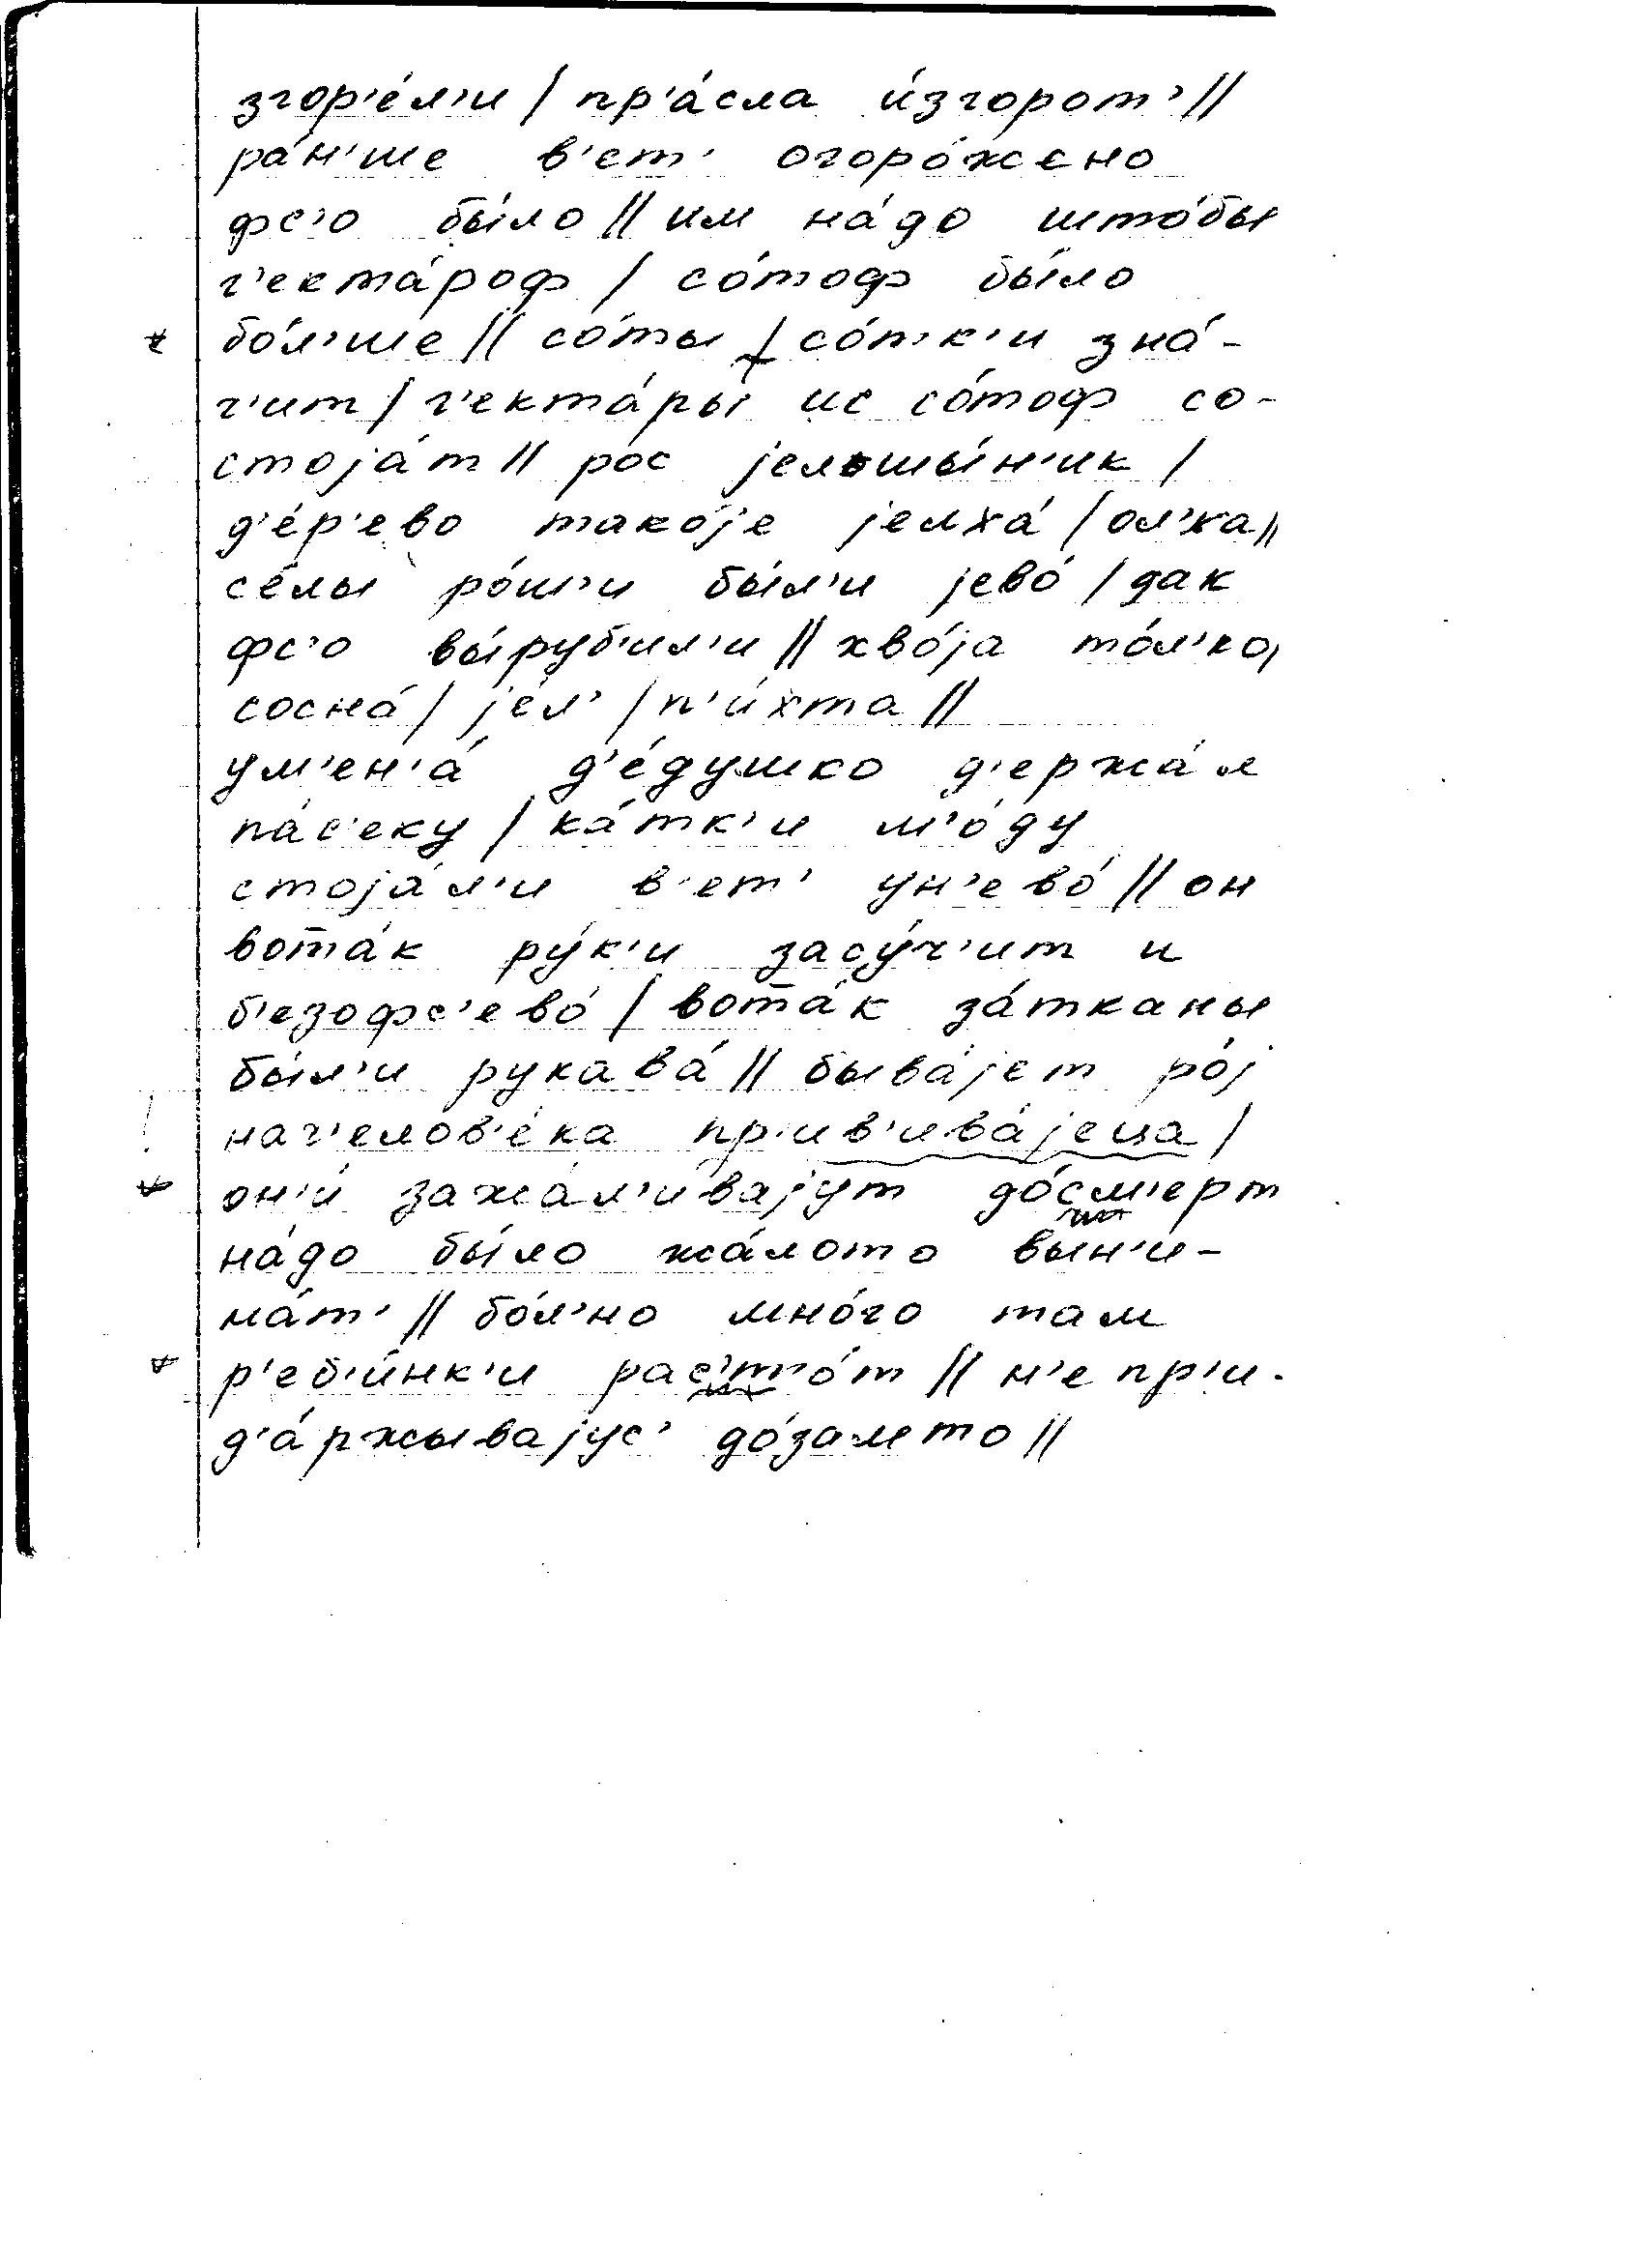 згор'е́л'и / пр'а́сла и́згорот' //
ра́н'ше в'ет' огоро́жено
фс'о бы́ло // им на́до што́бы
г'екта́роф / со́тоф бы́ло
бо́л'ше // со́ты / со́тк'и зна́-
ч'ит / г'екта́ры ис со́тоф со-
стоја́т // рос јелошы́н'ик /
д'е́р'ево тако́је јелха́ / ол'ха //
се́лы ро́ш'и бы́л'и јево́ / дак
фс'о вы́руб'ил'и // хво́ја то́л'ко,
сосна́ / је́л' / п'и́хта //
ум'ен'а́ д'е́душко д'ержа́л
па́с'еку / ка́тк'и м'о́ду
стоја́л'и в'ет' ун'ево́ // он
вота́к ру́к'и засу́ч'ит и
б'езофс'ево́ / вота́к за́тканы
бы́л'и рукава́ // быва́јет ро́ј
нач'елов'е́ка пр'ив'ива́јеца /
он'и́ зажа́л'ивајут до́см'ерт
на́до бы́ло жа́лото вын'и-
ма́т' // бо́л'но мно́го там
р'еб'и́нк'и рас'т'о́т // н'е пр'и-
д'а́ржывајус' до́замето //